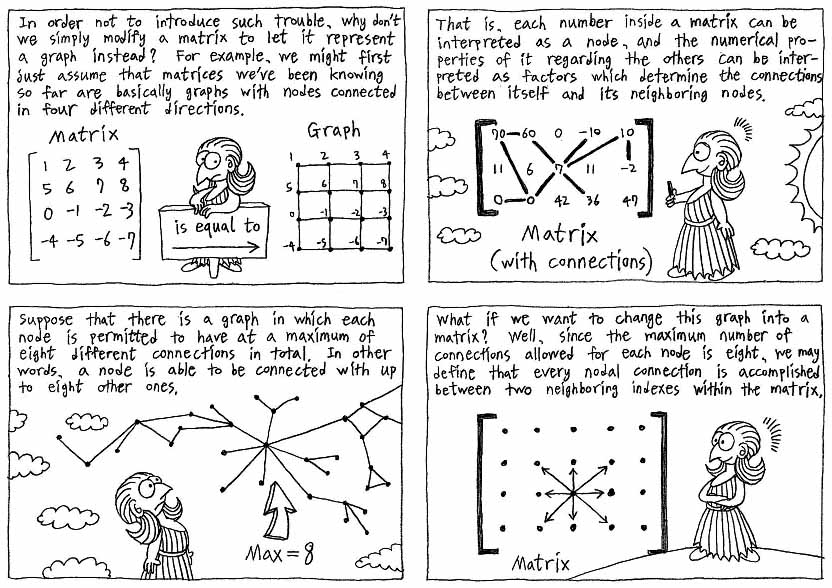 In order not to introduce such trouble, why don't
we simply modify a matrix to let it represent
a graph instead? For example, we might first
just assume that matrices we've been knowing
so far are basically graphs with nodes connected
in four different directions.
Matrix
1 2 3 4
5 6 7 8
0 -1 -2 -3
-4 -5 -6 -7
is equal to
Graph
1 2 3 4
5 6 7 8
0 -1 -2 -3
-4 -5 -6 -7
That is, each number inside a matrix can be
interpreted as a node, and the numerical pro-
perties of it regarding the others can be inter-
preted as factors which determine the connections
between itself and its neighboring nodes.
70 60 0 -10 10
11 6 7 11 -2
0 0 42 36 47
Matrix
(with connections)
Suppose that there is a graph in which each
node is permitted to have at a maximum of
eight different connections in total. In other
words, a node is able to be connected with up
to eight other ones.
Max = 8
What if we want to change this graph into a
matrix? Well, since the maximum number of
connections allowed for each node is eight, we may
define that every nodal connection is accomplished
between two neighboring indexes within the matrix.
Matrix